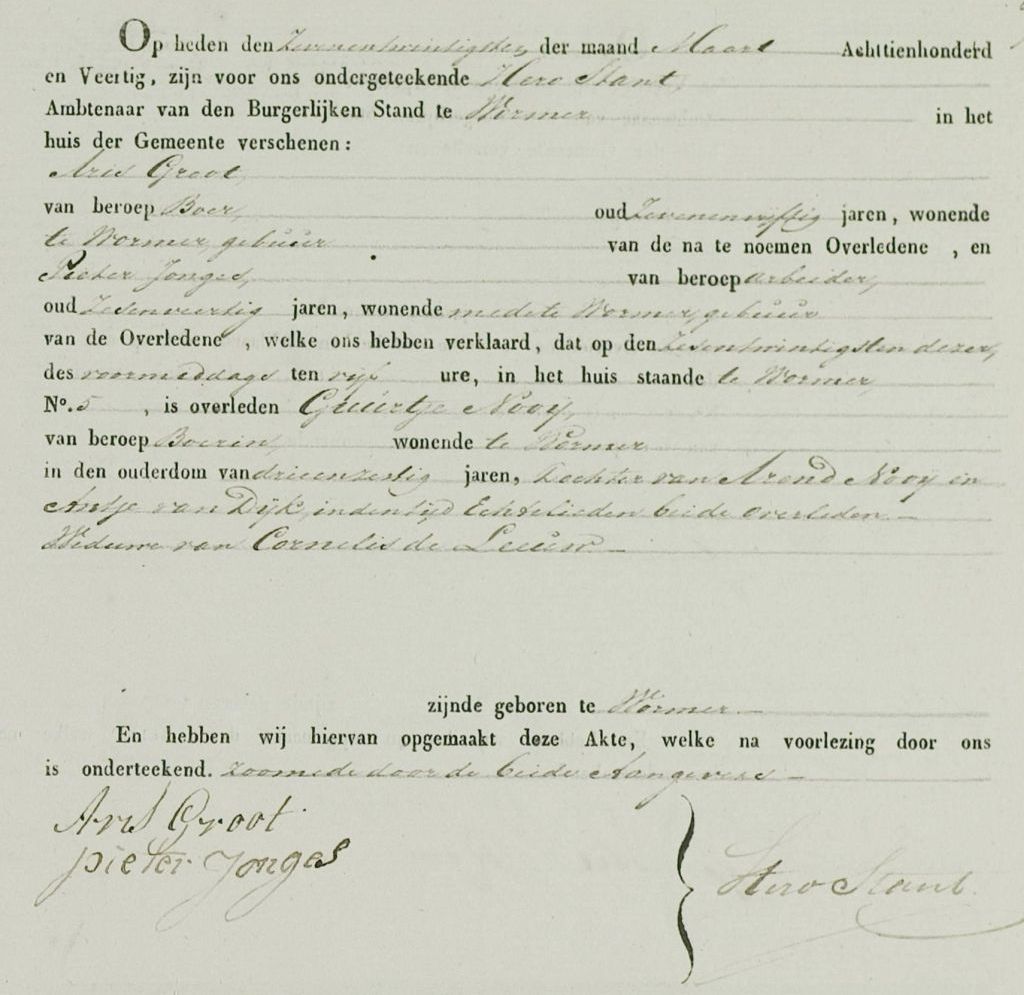 Op heden den Zevenentwintigsten der maand Maart Achttienhonderd
en Veertig, zijn voor ons ondergeteekende Hero Stant,
Ambtenaar van den Burgerlijken Stand te Wormer in het
huis der Gemeente verschenen:
Aris Groot,
van beroep Boer, oud Zevenenvijftig jaren, wonende
te Wormer, gebuur van de na te noemen Overledene , en
Pieter Jonges, van beroep arbeider,
oud Zesenveertig jaren, wonende mede te Wormer, gebuur
van de Overledene , welke ons hebben verklaard, dat op den Zesentwintigsten dezer,
des voormiddags ten vijf ure, in het huis staande te Wormer,
No. 5 , is overleden Guurtje Nooij,
van beroep Boerin, wonende te Wormer
in den ouderdom van drieenzestig jaren, Dochter van Arend Nooij en
Antje van Dijk, in den tijd Echtelieden beide overleden. —
Weduwe van Cornelis de Leeuw —
zijnde geboren te Wormer —
En hebben wij hiervan opgemaakt deze Akte, welke na voorlezing door ons
is onderteekend. zoomede door de beide Aangevers —
Aris Groot
pieter Jonges
Hero Stant